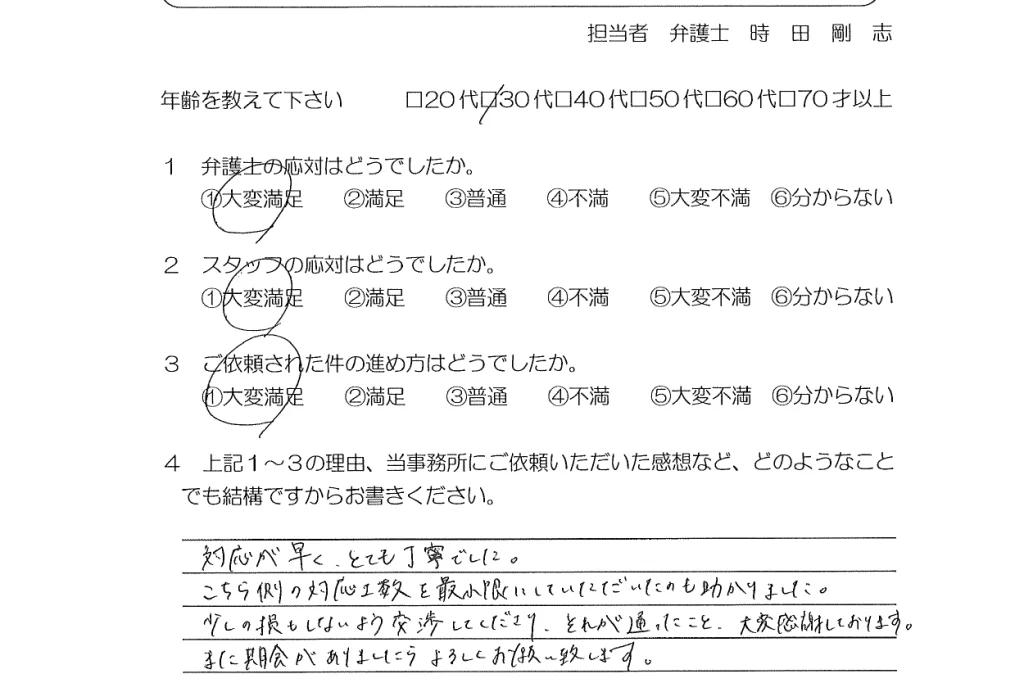 担当者 弁護士 時 田 剛 志
年齢を教えて下さい □20代□30代□40代□50代□60代□70才以上
1 弁護士の応対はどうでしたか。
①大変満足 ②満足 ③普通 ④不満 ⑤大変不満 ⑥分からない
2 スタッフの応対はどうでしたか。
①大変満足 ②満足 ③普通 ④不満 ⑤大変不満 ⑥分からない
3 ご依頼された件の進め方はどうでしたか。
①大変満足 ②満足 ③普通 ④不満 ⑤大変不満 ⑥分からない
4 上記1～3の理由、当事務所にご依頼いただいた感想など、どのようなこと
でも結構ですからお書きください。
対応が早く、とても丁寧でした。
こちら側の対応工数を最小限にしていただいたのも助かりました。
少しの損もしないよう交渉してくださり、それが通ったこと、大変感謝しております。
また機会がありましたらよろしくお願い致します。